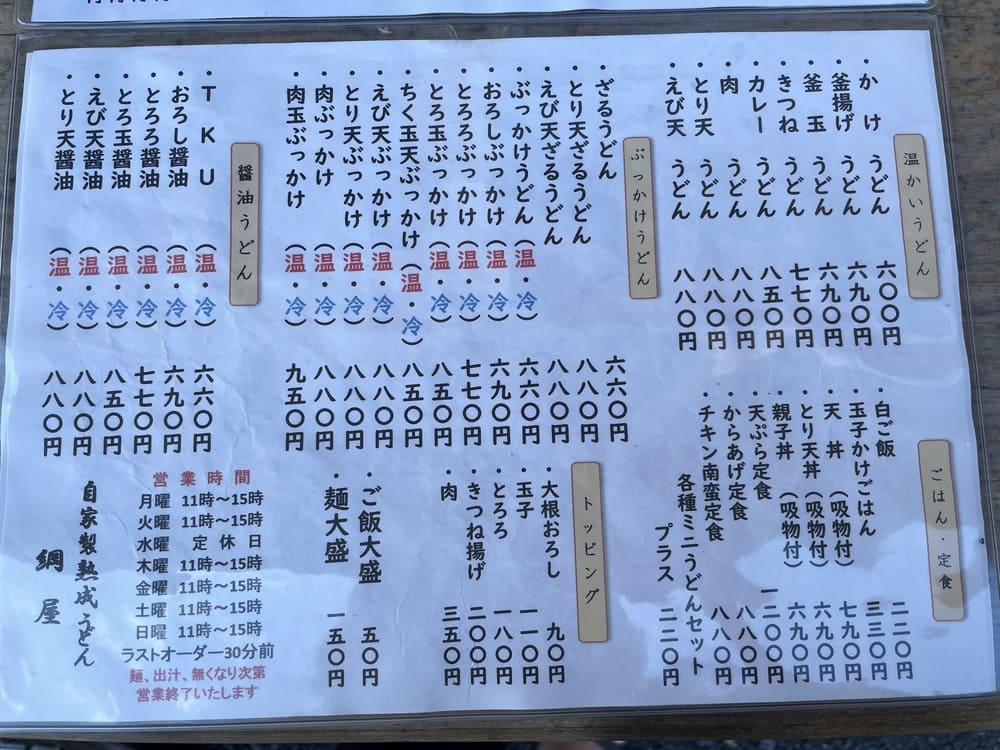 温かいうどん
・かけうどん 六〇〇円
・釜揚げうどん 六九〇円
・釜玉うどん 六九〇円
・きつねうどん 七七〇円
・カレーうどん 八五〇円
・肉うどん 八八〇円
・とり天うどん 八八〇円
・えび天うどん 八八〇円
ぶっかけうどん
・ざるうどん 六六〇円
・とり天ざるうどん 八八〇円
・えび天ざるうどん 八八〇円
・ぶっかけうどん(温・冷) 六六〇円
・おろしぶっかけ(温・冷) 六九〇円
・とろろぶっかけ(温・冷) 七七〇円
・とろ玉ぶっかけ(温・冷) 八五〇円
・ちく玉天ぶっかけ(温・冷) 八五〇円
・えび天ぶっかけ(温・冷) 八八〇円
・とり天ぶっかけ(温・冷) 八八〇円
・肉ぶっかけ(温・冷) 八八〇円
・肉玉ぶっかけ(温・冷) 九五〇円
醤油うどん
・TKU(温・冷) 六六〇円
・おろし醤油(温・冷) 六九〇円
・とろろ醤油(温・冷) 七七〇円
・とろ玉醤油(温・冷) 八五〇円
・えび天醤油(温・冷) 八八〇円
・とり天醤油(温・冷) 八八〇円
ごはん・定食
・白ご飯 二二〇円
・玉子かけごはん 三三〇円
・天丼(吸物付) 七九〇円
・とり天丼(吸物付) 六九〇円
・親子丼(吸物付) 六九〇円
・天ぷら定食 一二〇〇円
・からあげ定食 八八〇円
・チキン南蛮定食 八八〇円
各種ミニうどんセット
プラス 二二〇円
トッピング
・大根おろし 九〇円
・玉子 一一〇円
・とろろ 一八〇円
・きつね揚げ 二〇〇円
・肉 三五〇円
・ご飯大盛 五〇円
・麺大盛 一五〇円
営業時間
月曜 11時～15時
火曜 11時～15時
水曜 定休日
木曜 11時～15時
金曜 11時～15時
土曜 11時～15時
日曜 11時～15時
ラストオーダー30分前
麺、出汁、無くなり次第
営業終了いたします
自家製熟成うどん
綱屋